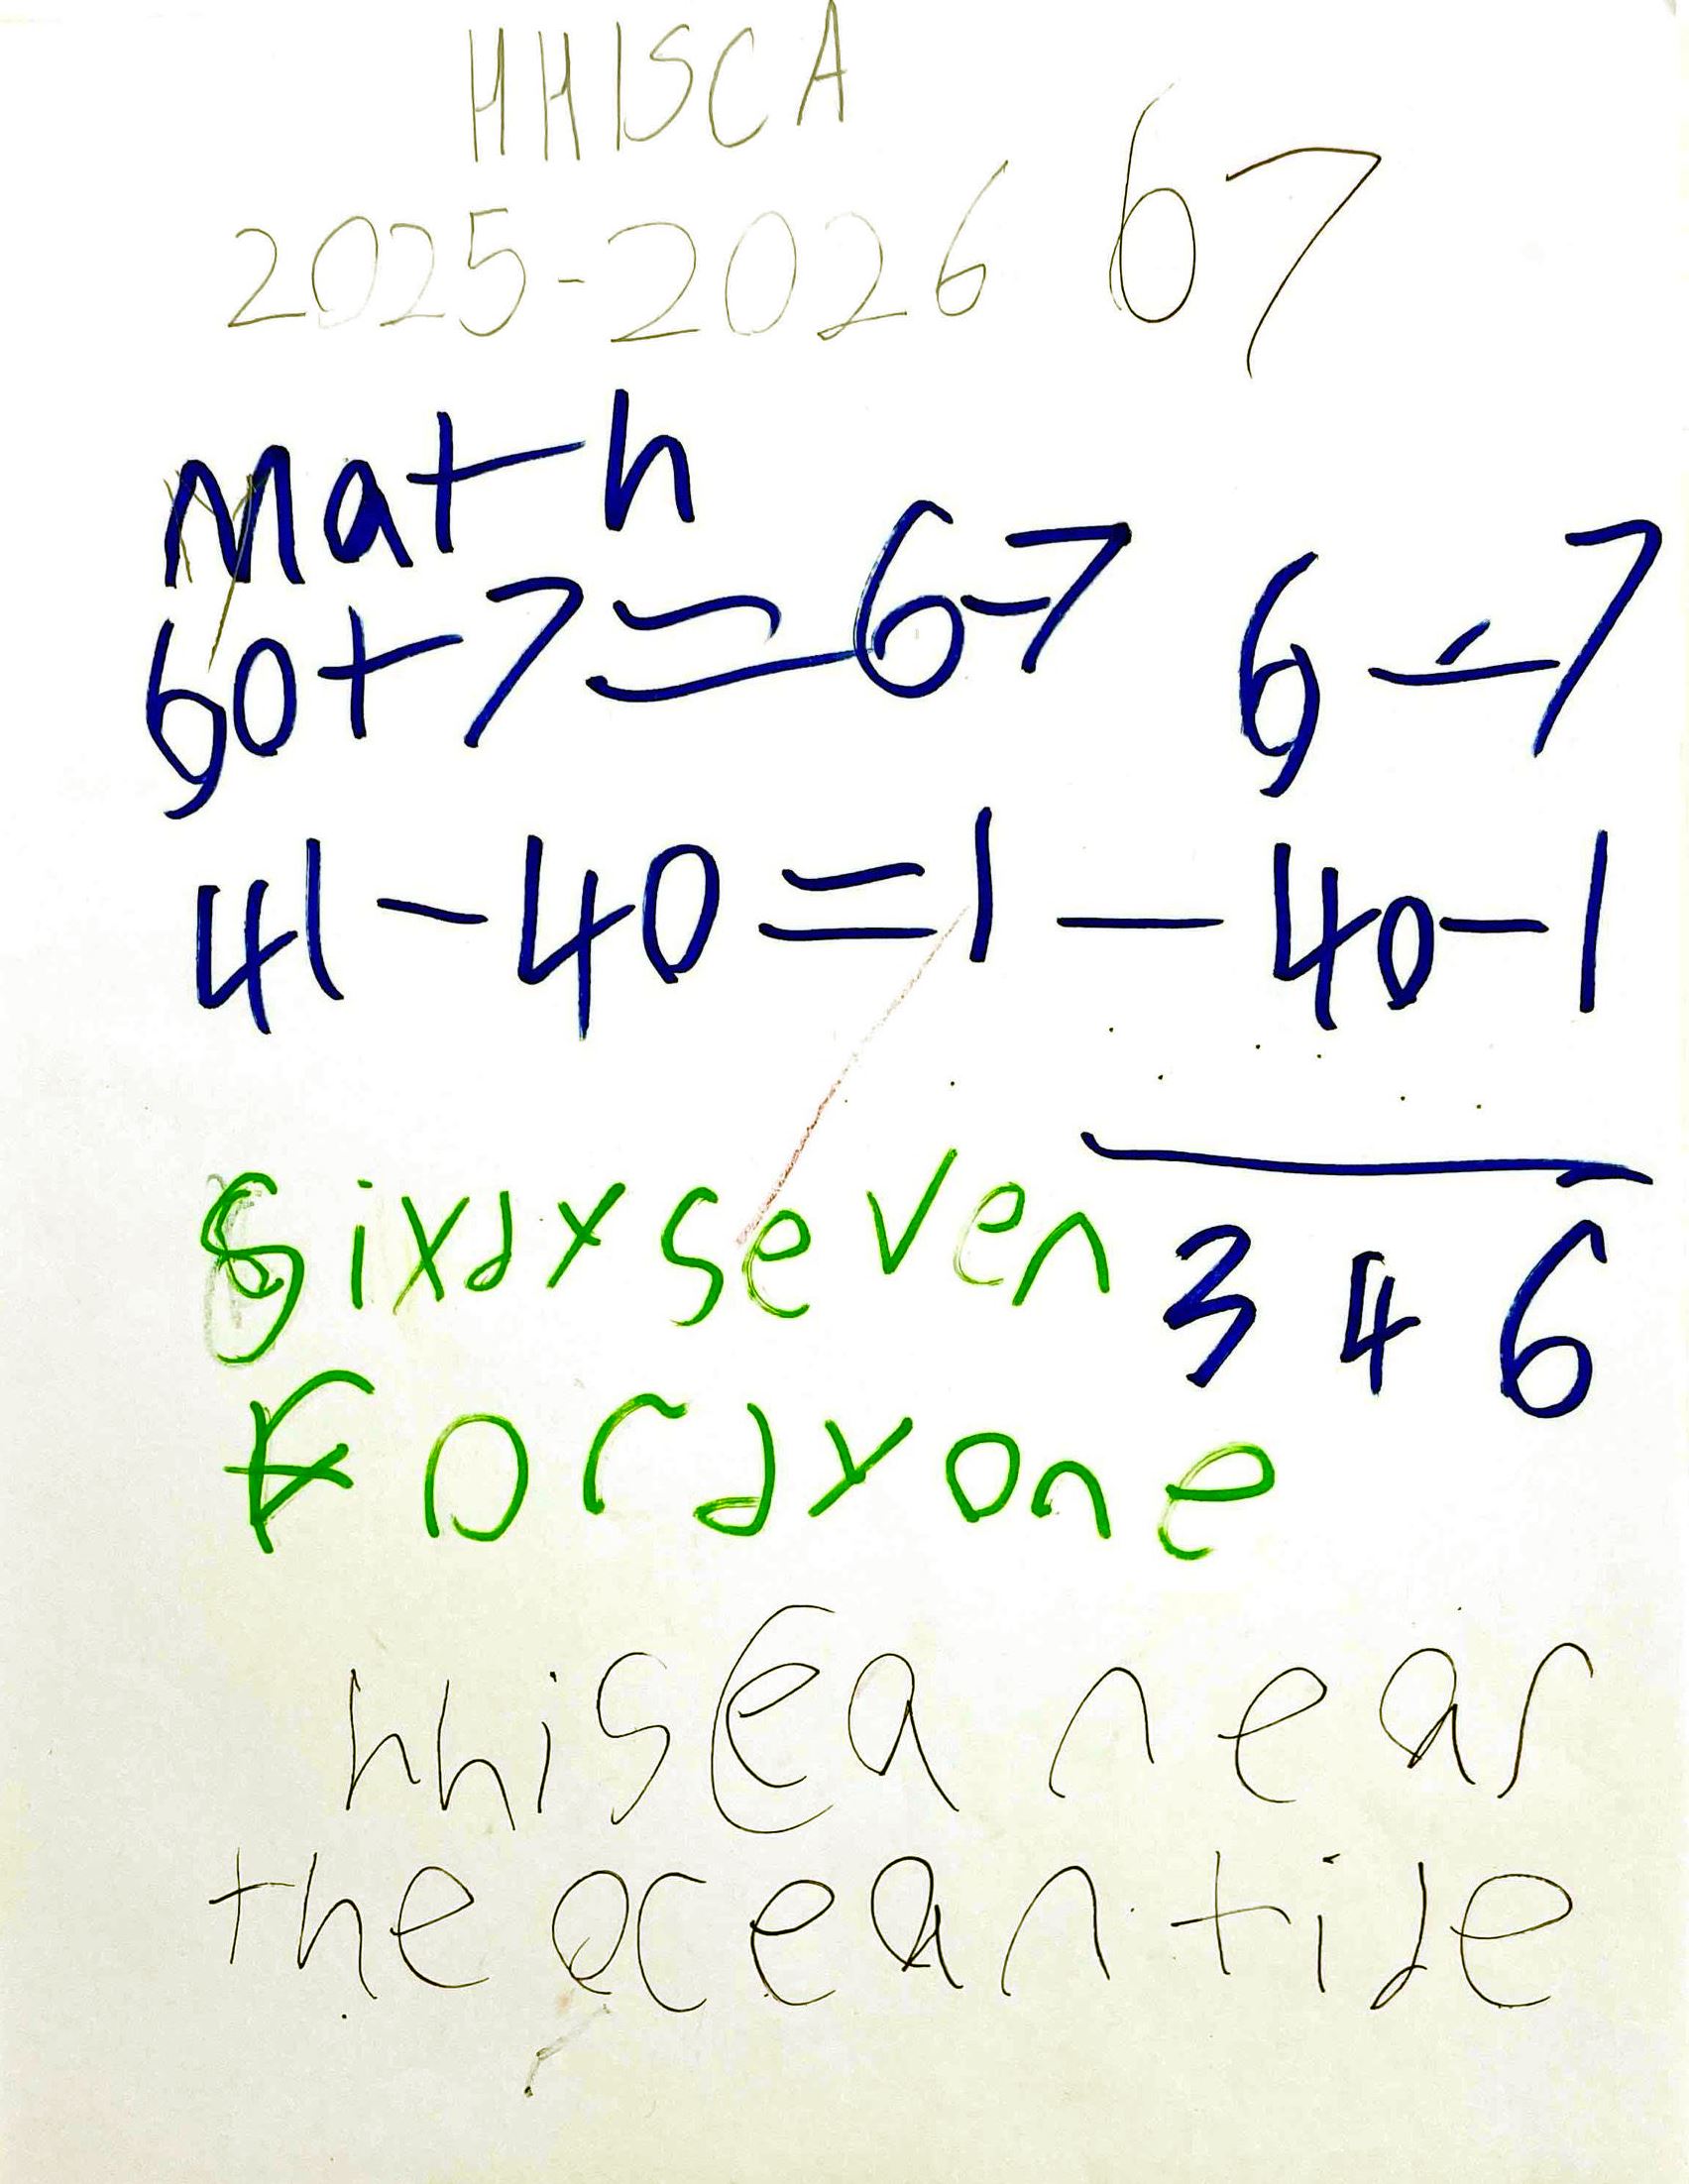 HHISCA
2025-2026 67
Math
60+7=6-7 6-7
41-40=1-40-1
sixdxseven
346
Fordyone
hhisea near
the ocean tide